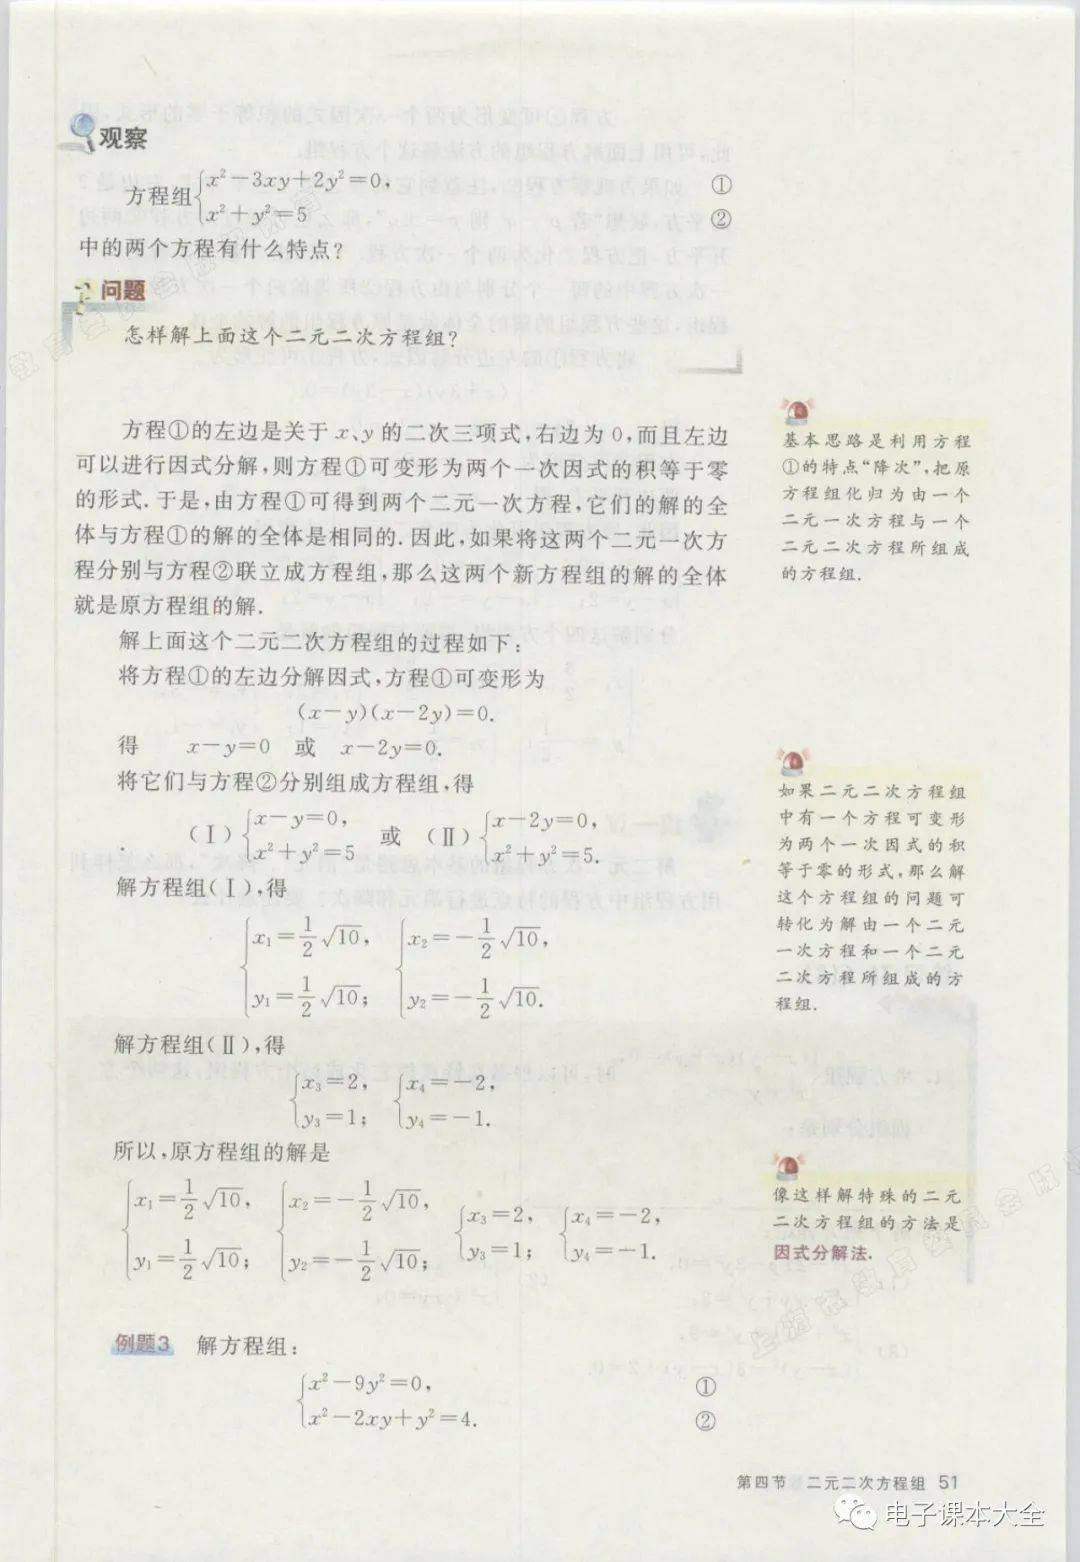 观察
方程组{x²-3xy+2y²=0, ①
x²+y²=5 ②
中的两个方程有什么特点?
问题
怎样解上面这个二元二次方程组?
方程①的左边是关于 x、y 的二次三项式,右边为 0,而且左边
可以进行因式分解,则方程①可变形为两个一次因式的积等于零
的形式.于是,由方程①可得到两个二元一次方程,它们的解的全
体与方程①的解的全体是相同的.因此,如果将这两个二元一次方
程分别与方程②联立成方程组,那么这两个新方程组的解的全体
就是原方程组的解.
基本思路是利用方程
①的特点“降次”,把原
方程组化归为由一个
二元一次方程与一个
二元二次方程所组成
的方程组.
解上面这个二元二次方程组的过程如下:
将方程①的左边分解因式,方程①可变形为
(x-y)(x-2y)=0.
得 x-y=0 或 x-2y=0.
将它们与方程②分别组成方程组,得
(Ⅰ){x-y=0, 或 (Ⅱ){x-2y=0,
x²+y²=5 x²+y²=5.
如果二元二次方程组
中有一个方程可变形
为两个一次因式的积
等于零的形式,那么解
这个方程组的问题可
转化为解由一个二元
一次方程和一个二元
二次方程所组成的方
程组.
解方程组(Ⅰ),得
{x₁=1/2√10, {x₂=-1/2√10,
y₁=1/2√10; y₂=-1/2√10.
解方程组(Ⅱ),得
{x₃=2, {x₄=-2,
y₃=1; y₄=-1.
所以,原方程组的解是
{x₁=1/2√10, {x₂=-1/2√10, {x₃=2, {x₄=-2,
y₁=1/2√10; y₂=-1/2√10; y₃=1; y₄=-1.
像这样解特殊的二元
二次方程组的方法是
因式分解法.
例题3 解方程组:
{x²-9y²=0, ①
x²-2xy+y²=4. ②
第四节 二元二次方程组 51
电子课本大全